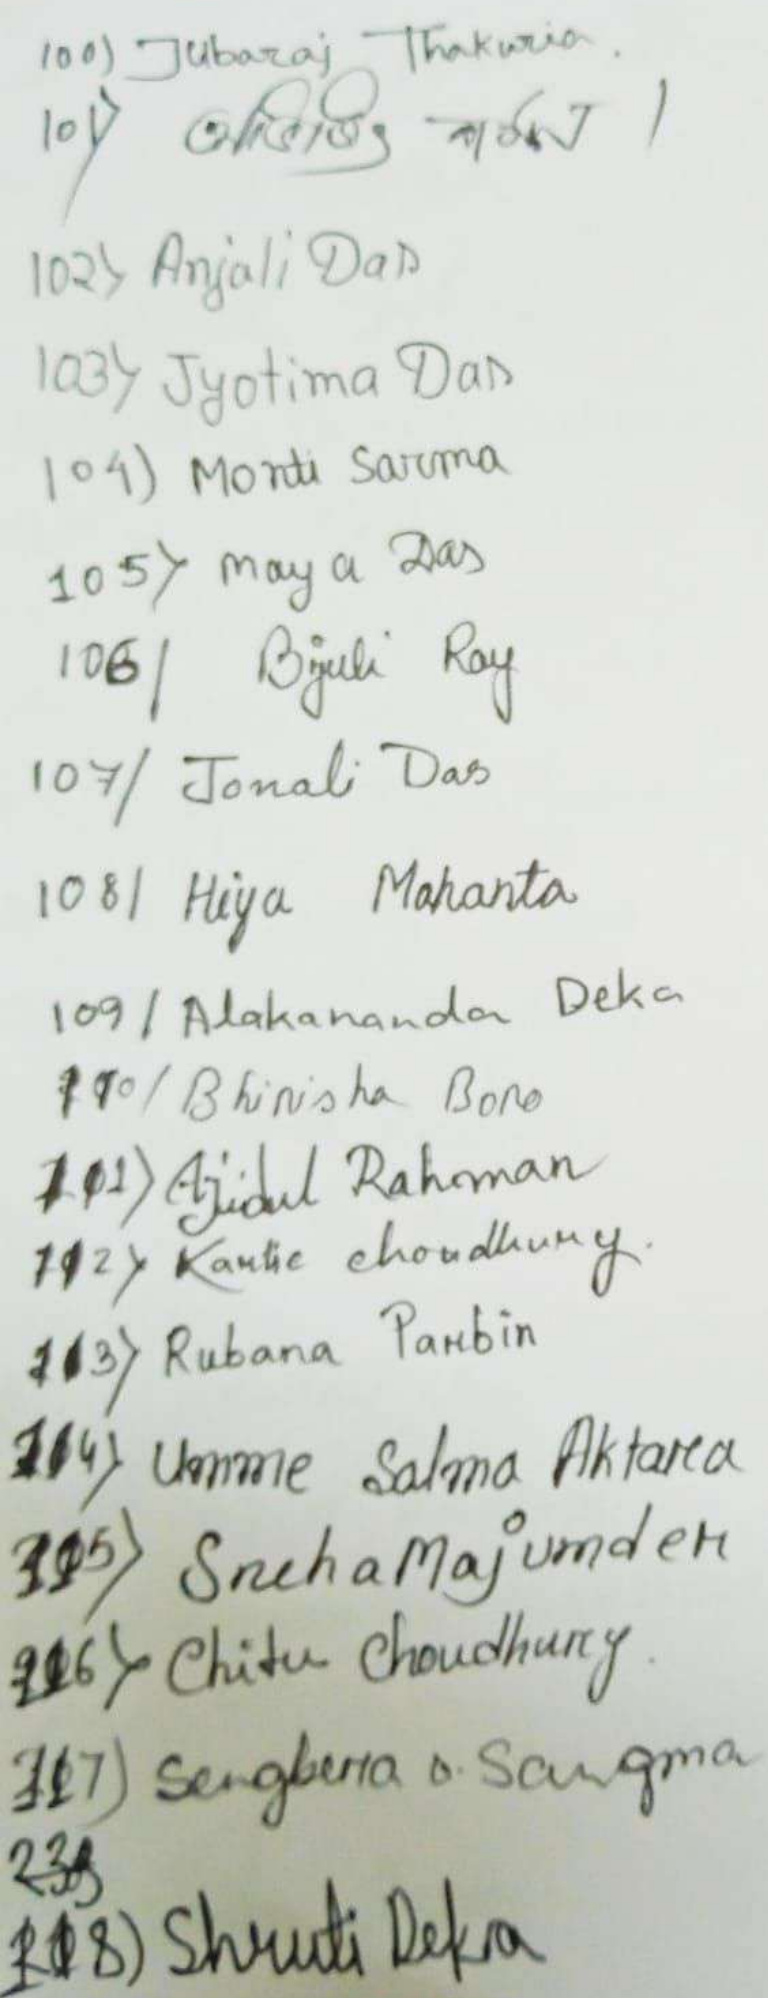 100) Jubaraj Thakuria.
101)
102) Anjali Das
103) Jyotima Das
104) Monti Sarma
105) Maya Das
106/ Bijuli Ray
107/ Jonali Das
108/ Hiya Mahanta
109/ Alakananda Deka
110/ Bhinisha Boro
111) Ajidul Rahman
112) choudhury.
113) Rubana Parbin
114) Umme Salma Aktara
115) Sneha Majumder
116) Chitu Choudhury.
117) Sengberia Sangma
118) Shruti Deka